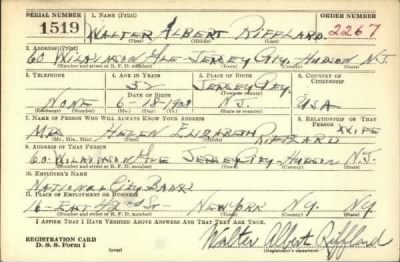 SERIAL NUMBER 1. NAME (Print) ORDER NUMBER
1519 WALTER ALBERT RIFFLARD 2267
(First) (Middle) (Last)
2. ADDRESS (Print)
60 WILKINSON AVE JERSEY CITY, HUDSON N.J.
(Number and street or R. F. D. number) (Town) (County) (State)
3. TELEPHONE 4. AGE IN YEARS 5. PLACE OF BIRTH 6. COUNTRY OF CITIZENSHIP
JERSEY CITY
NONE 6-28-1908 N.J. USA
7. NAME OF PERSON WHO WILL ALWAYS KNOW YOUR ADDRESS 8. RELATIONSHIP OF THAT PERSON
MRS HELEN ELIZABETH RIFFLARD WIFE
(Mr., Mrs., Miss) (First) (Middle) (Last)
9. ADDRESS OF THAT PERSON
60 WILKINSON AVE JERSEY CITY HUDSON N.J.
(Number and street or R. F. D. number) (Town) (County) (State)
10. EMPLOYER'S NAME
NATIONAL CITY BANK
11. PLACE OF EMPLOYMENT OR BUSINESS
16 EAST 42nd St NEW YORK NY. NY.
(Number and street or R. F. D. number) (Town) (County) (State)
I AFFIRM THAT I HAVE VERIFIED ABOVE ANSWERS AND THAT THEY ARE TRUE.
REGISTRATION CARD
D. S. S. Form 1 (over) Walter Albert Rifflard